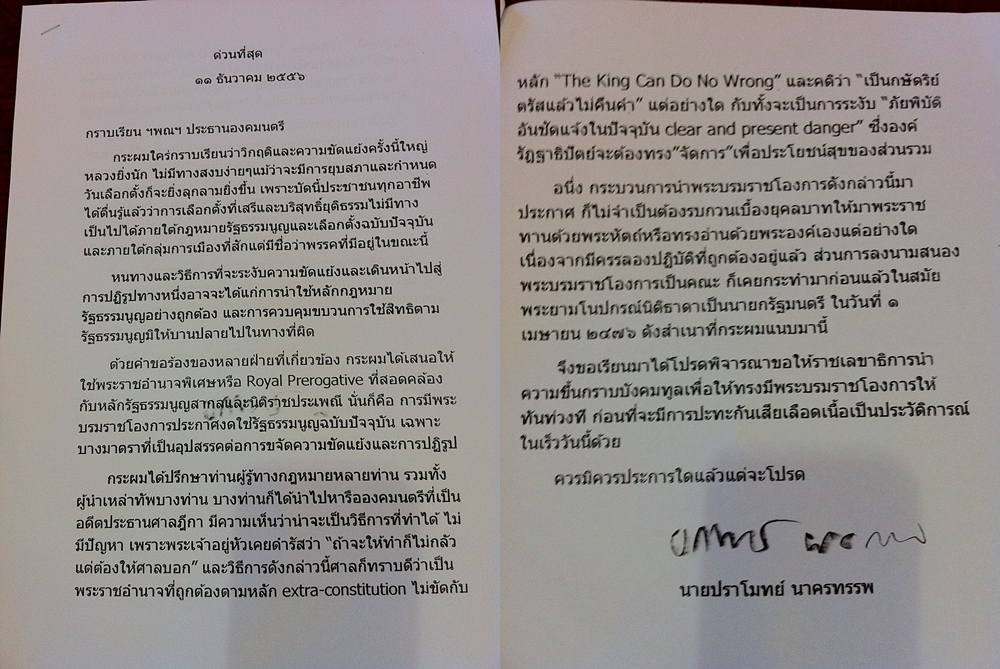 ด่วนที่สุด
๑๑ ธันวาคม ๒๕๕๖
กราบเรียน ฯพณฯ ประธานองคมนตรี
กระผมใคร่กราบเรียนว่าวิกฤติและความขัดแย้งครั้งนี้ใหญ่
หลวงยิ่งนัก ไม่มีทางสงบง่ายๆแม้ว่าจะมีการยุบสภาและกำหนด
วันเลือกตั้งก็จะยิ่งลุกลามยิ่งขึ้น เพราะบัดนี้ประชาชนทุกอาชีพ
ได้ตื่นรู้แล้วว่าการเลือกตั้งที่เสรีและบริสุทธิ์ยุติธรรมไม่มีทาง
เป็นไปได้ภายใต้กฎหมายรัฐธรรมนูญและเลือกตั้งฉบับปัจจุบัน
และภายใต้กลุ่มการเมืองที่สักแต่มีชื่อว่าพรรคที่มีอยู่ในขณะนี้
หนทางและวิธีการที่จะระงับความขัดแย้งและเดินหน้าไปสู่
การปฏิรูปทางหนึ่งอาจจะได้แก่การนำใช้หลักกฎหมาย
รัฐธรรมนูญอย่างถูกต้อง และการควบคุมขบวนการใช้สิทธิตาม
รัฐธรรมนูญมิให้บานปลายไปในทางที่ผิด
ด้วยคำขอร้องของหลายฝ่ายที่เกี่ยวข้อง กระผมได้เสนอให้
ใช้พระราชอำนาจพิเศษหรือ Royal Prerogative ที่สอดคล้อง
กับหลักรัฐธรรมนูญสากลและนิติราชประเพณี นั่นก็คือ การมีพระ
บรมราชโองการประกาศงดใช้รัฐธรรมนูญฉบับปัจจุบัน เฉพาะ
บางมาตราที่เป็นอุปสรรคต่อการขจัดความขัดแย้งและการปฏิรูป
กระผมได้ปรึกษาท่านผู้รู้ทางกฎหมายหลายท่าน รวมทั้ง
ผู้นำเหล่าทัพบางท่าน บางท่านก็ได้นำไปหารือองคมนตรีที่เป็น
อดีตประธานศาลฎีกา มีความเห็นว่าน่าจะเป็นวิธีการที่ทำได้ ไม่
มีปัญหา เพราะพระเจ้าอยู่หัวเคยดำรัสว่า “ถ้าจะให้ทำก็ไม่กลัว
แต่ต้องให้ศาลบอก” และวิธีการดังกล่าวนี้ศาลก็ทราบดีว่าเป็น
พระราชอำนาจที่ถูกต้องตามหลัก extra-constitution ไม่ขัดกับ
หลัก “The King Can Do No Wrong” และคติว่า “เป็นกษัตริย์
ตรัสแล้วไม่คืนคำ” แต่อย่างใด กับทั้งจะเป็นการระงับ “ภัยพิบัติ
อันชัดแจ้งในปัจจุบัน clear and present danger” ซึ่งองค์
รัฏฐาธิปัตย์จะต้องทรง“จัดการ”เพื่อประโยชน์สุขของส่วนรวม
อนึ่ง กระบวนการนำพระบรมราชโองการดังกล่าวนี้มา
ประกาศ ก็ไม่จำเป็นต้องรบกวนเบื้องยุคลบาทให้มาพระราช
ทานด้วยพระหัตถ์หรือทรงอ่านด้วยพระองค์เองแต่อย่างใด
เนื่องจากมีครรลองปฏิบัติที่ถูกต้องอยู่แล้ว ส่วนการลงนามสนอง
พระบรมราชโองการเป็นคณะ ก็เคยกระทำมาก่อนแล้วในสมัย
พระยามโนปกรณ์นิติธาดาเป็นนายกรัฐมนตรี ในวันที่ ๑
เมษายน ๒๔๗๖ ดังสำเนาที่กระผมแนบมานี้
จึงขอเรียนมาได้โปรดพิจารณาขอให้ราชเลขาธิการนำ
ความขึ้นกราบบังคมทูลเพื่อให้ทรงมีพระบรมราชโองการให้
ทันท่วงที ก่อนที่จะมีการปะทะกันเสียเลือดเนื้อเป็นประวัติการณ์
ในเร็ววันนี้ด้วย
ควรมิควรประการใดแล้วแต่จะโปรด
นายปราโมทย์ นาครทรรพ